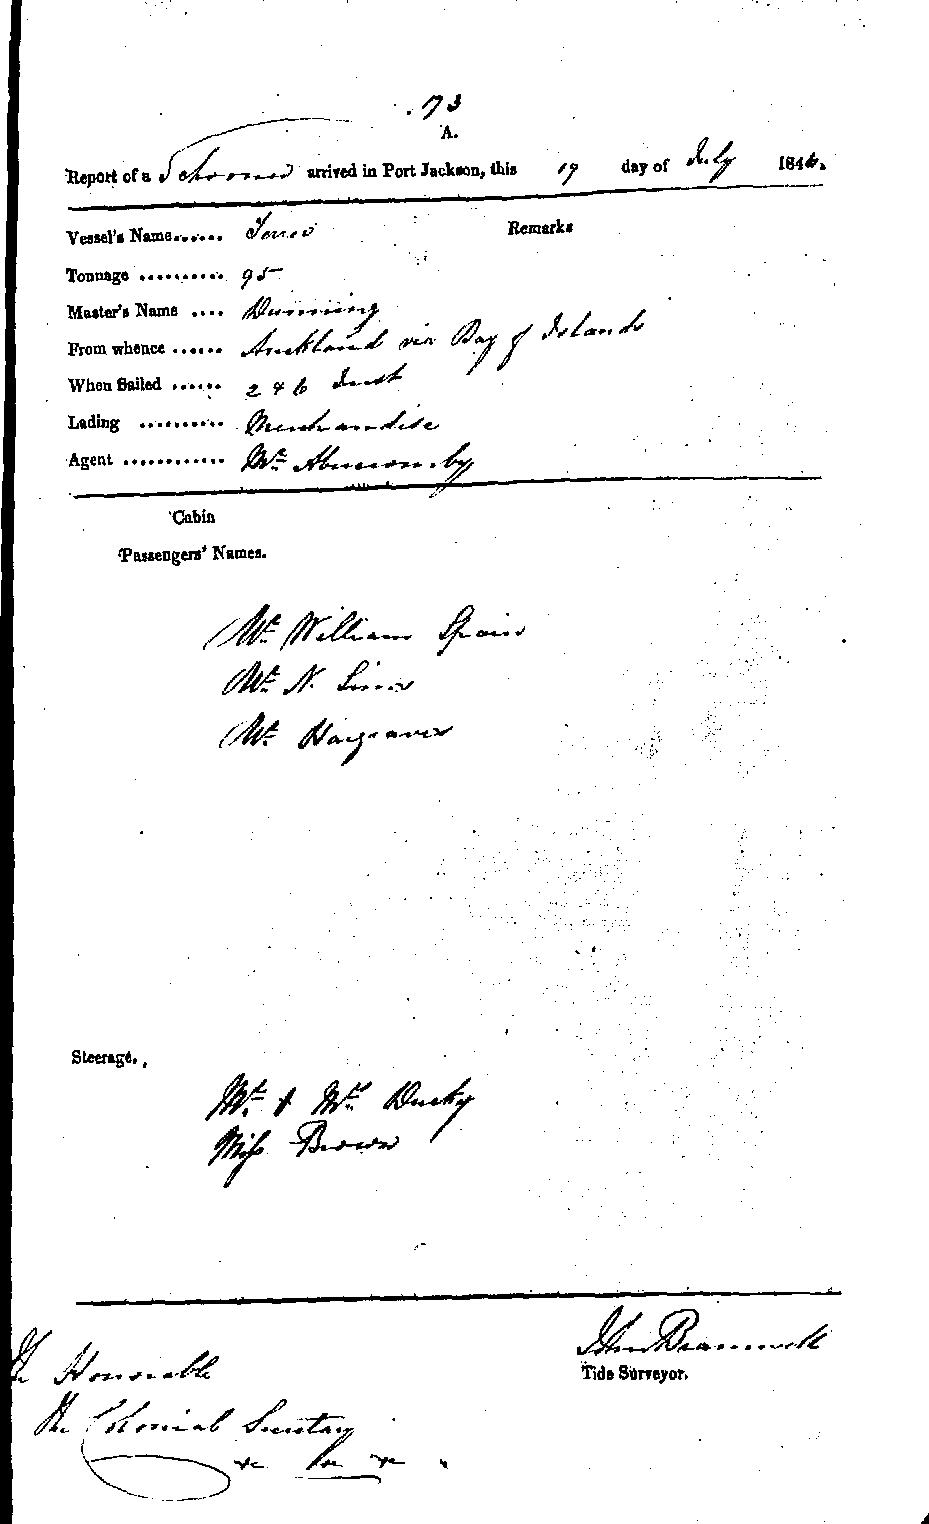 73
A.
Report of a Schooner arrived in Port Jackson, this 19 day of July 184
Vessel's Name...... Remarks
Tonnage .......... 95
Master's Name .... Dunning
From whence ...... Auckland via Bay of Islands
When Sailed ...... 2 & 6 Inst
Lading .......... Merchandise
Agent ............ Mr. Abercromby
Cabin
Passengers' Names.
Mr. William Spain
Mr. N.
Mr. Hargraves
Steerage.
Mr. & Mrs. Ducky
Miss Brown
The Honorable
The Colonial Secretary
&c &c &c
John
Tide Surveyor.